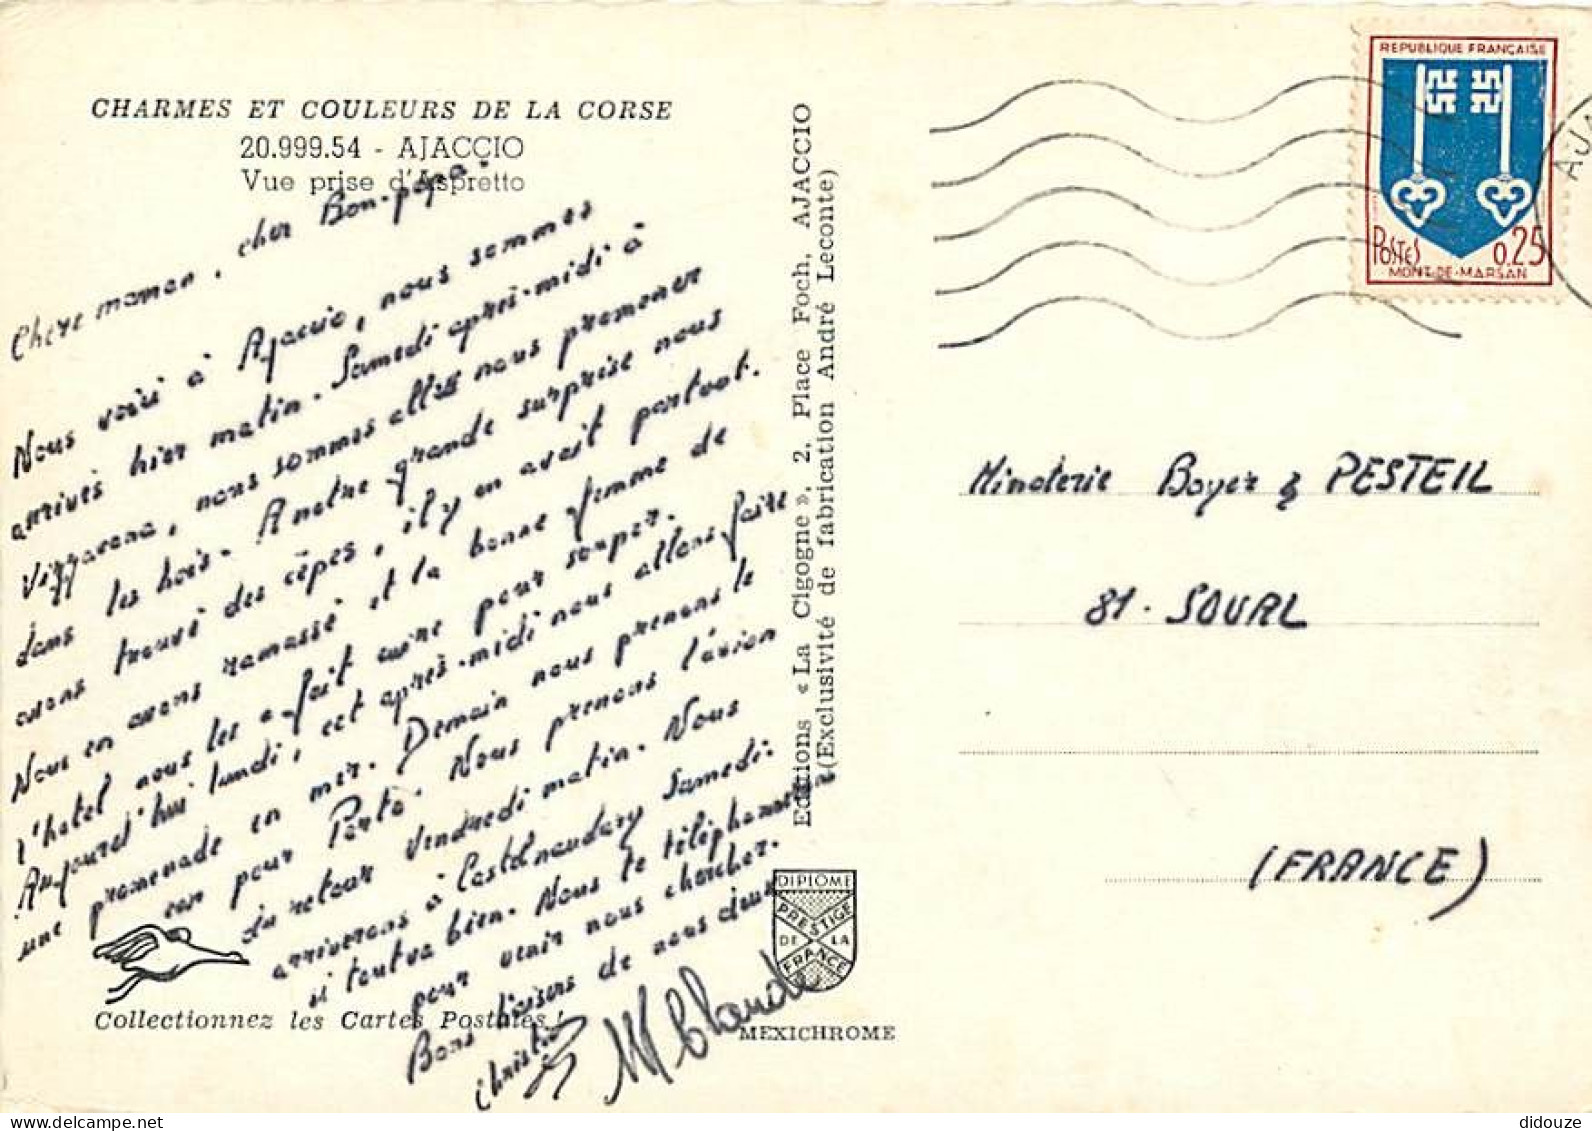 CHARMES ET COULEURS DE LA CORSE
20.999.54 - AJACCIO
Vue prise d'Aspretto
Chère maman, cher Bon-papa.
Nous voici à Ajaccio, nous sommes
arrivés hier matin. Samedi après-midi à
Vizzavona, nous sommes allés nous promener
dans les bois. A notre grande surprise nous
avons trouvé des cèpes, il y en avait partout.
Nous en avons ramassé et la bonne femme de
l'hotel nous les a fait cuire pour souper.
Aujourd'hui lundi, cet après-midi nous allons faire
une promenade en mer. Demain nous prenons le
car pour Porto. Nous prenons l'avion
du retour Vendredi matin. Nous
arriverons à Castelnaudary Samedi
si tout va bien. Nous te téléphonerons
pour venir nous chercher.
Bons baisers de nous deux
Christie
M Claude
Collectionnez les Cartes Postales !
Editions « La Cigogne », 2, Place Foch, AJACCIO
(Exclusivité de fabrication André Leconte)
DIPLOME
PRESTIGE
DE LA
FRANCE
MEXICHROME
REPUBLIQUE FRANÇAISE
POSTES 0.25
MONT-DE-MARSAN
Minoterie Boyer & PESTEIL
81 - SOUAL
(FRANCE)
didouze